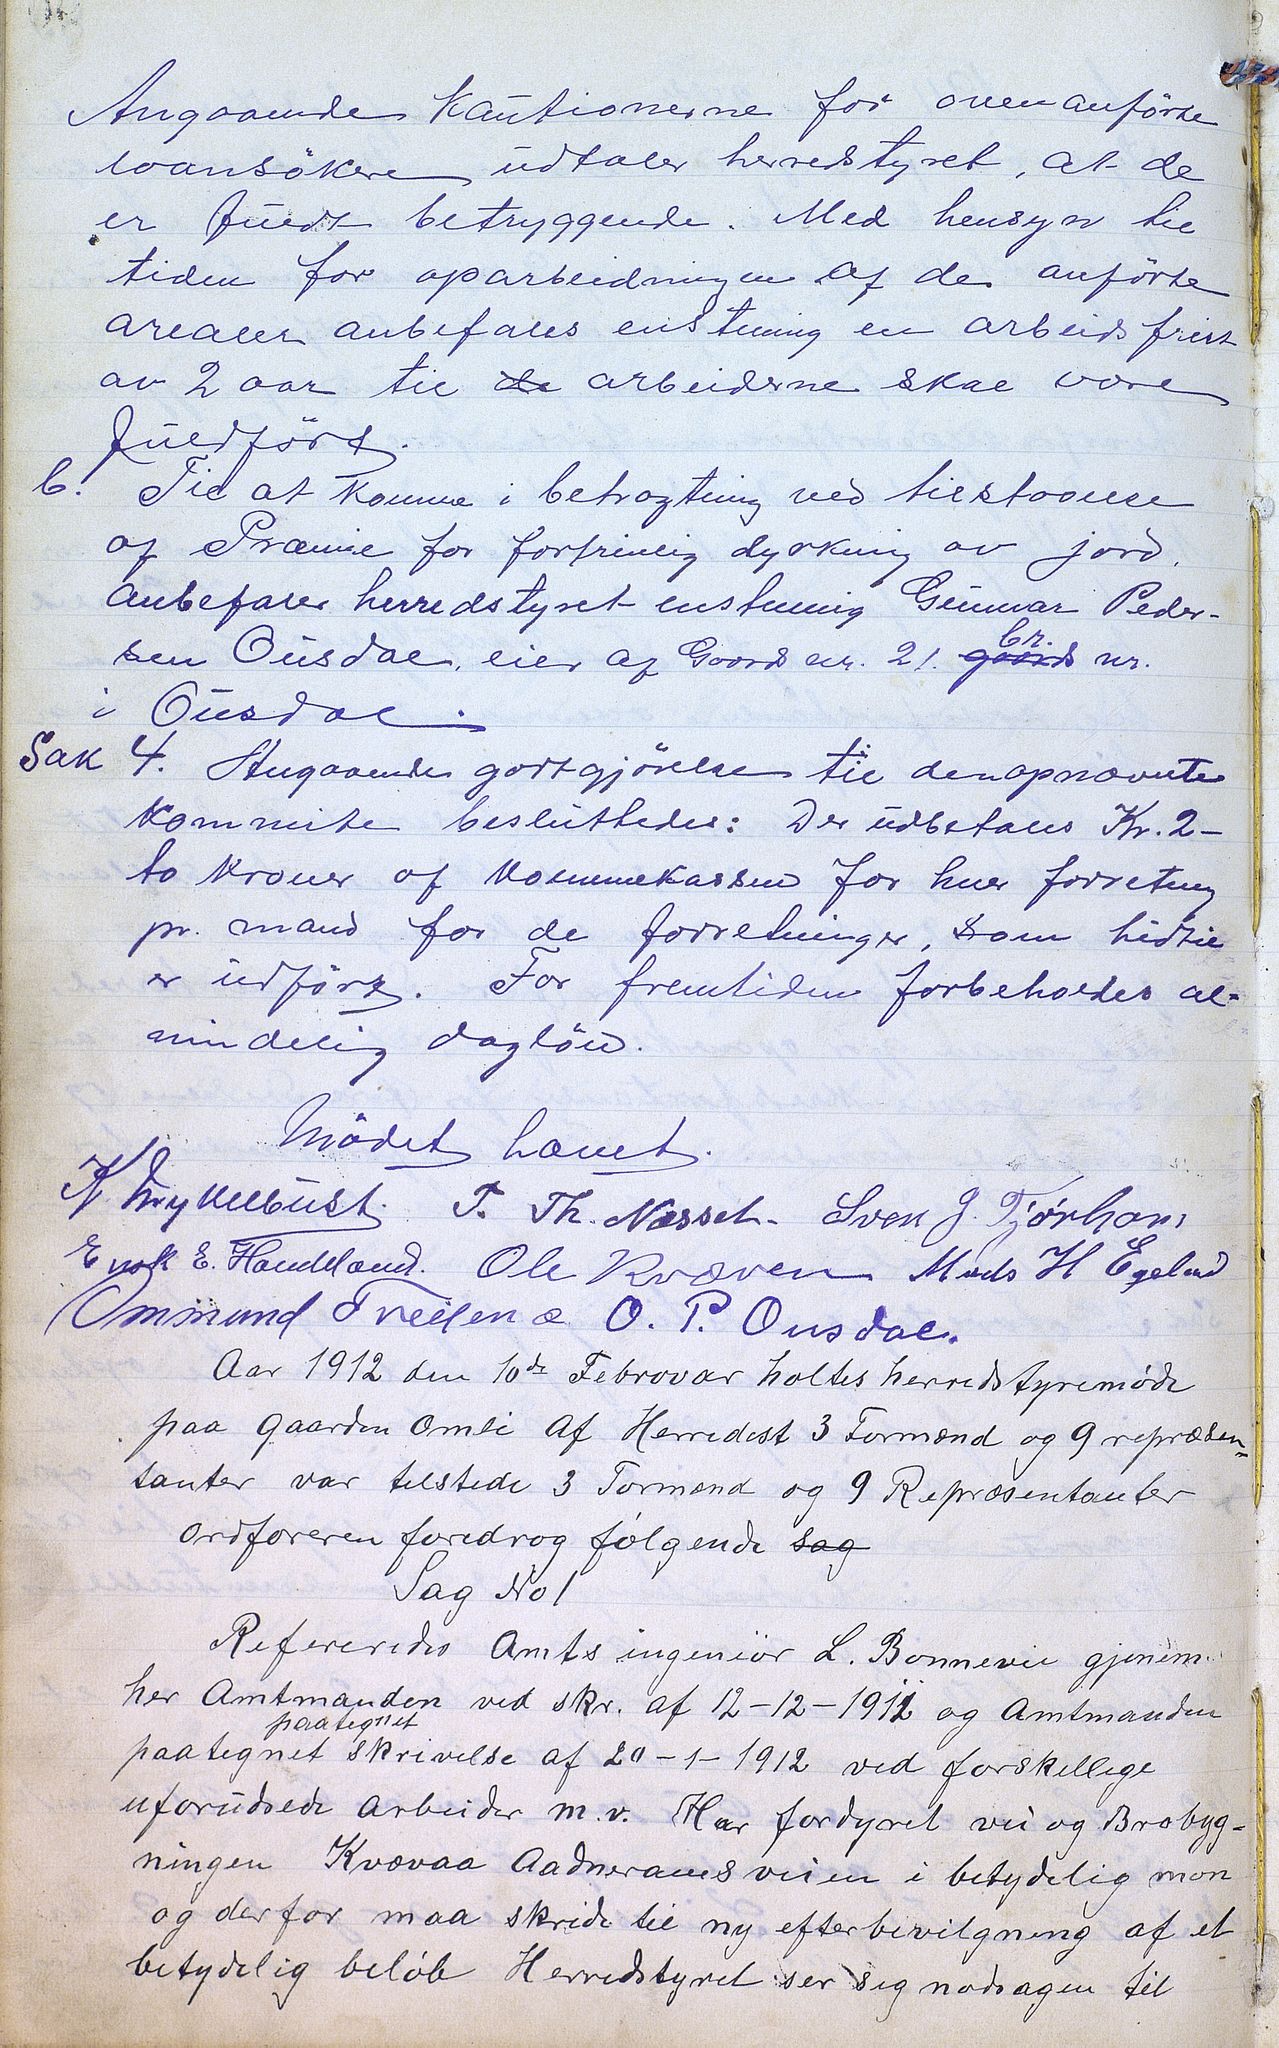 Angaaende Kautionerne for ovenanförte
loansökere udtaler herredstyret, at de
er fuldt betryggende. Med hensyn til
tiden for oparbeidningen af de anförte
arealer anbefales enstemig en arbeidsfrist
av 2 aar til de arbeiderne skal være
fuldfört.
b. Til at komme i betragtning ved tilstaaelse
af Præmie for fortrinlig dyrkning av jord,
anbefaler herredstyret enstemig Gunvar Peder-
sen Ousdal, eier af Gaards nr. 21. gaards br. nr.
i Ousdal.
Sak 4. Angaaende godtgjörelse til den opnævnte
kommite besluttedes: Der udbetales Kr. 2-
to kroner af kommunekassen for hver forretning
pr. mand for de forretninger, som hidtil
er udfört. For fremtiden forbeholdes al-
mindelig daglön.
Mödet hævet.
K Drykellbust. T. Th. Nesset. Sven J. Tjørhom
Enok E. Handeland. Ole Kvæven Mads H Egeland
Ommund Trellend O. P. Ousdal.
Aar 1912 den 10de Februar holtes herredstyremøde
paa gaarden Omli Af Herredest 3 Formend og 9 repræsen-
tanter var tilstede 3 Formend og 9 Repræsentanter
Ordføreren foredrog følgende sag
Sag No 1
Refereredes Amtsingeniör L. Bonnevie gjenem
her Amtmanden ved skr. af 12-12-1911 og Amtmanden
paategnet
paategnet skrivelse af 20-1-1912 ved forskellige
uforudsede Arbeider m.v. Har fordyret vei og Brobyg-
ningen Kvævaa Aadneramsveien i betydelig mon
og derfor maa skride til ny efterbevilgning af et
betydelig beløb Herredstyret ser sig nødsagen til